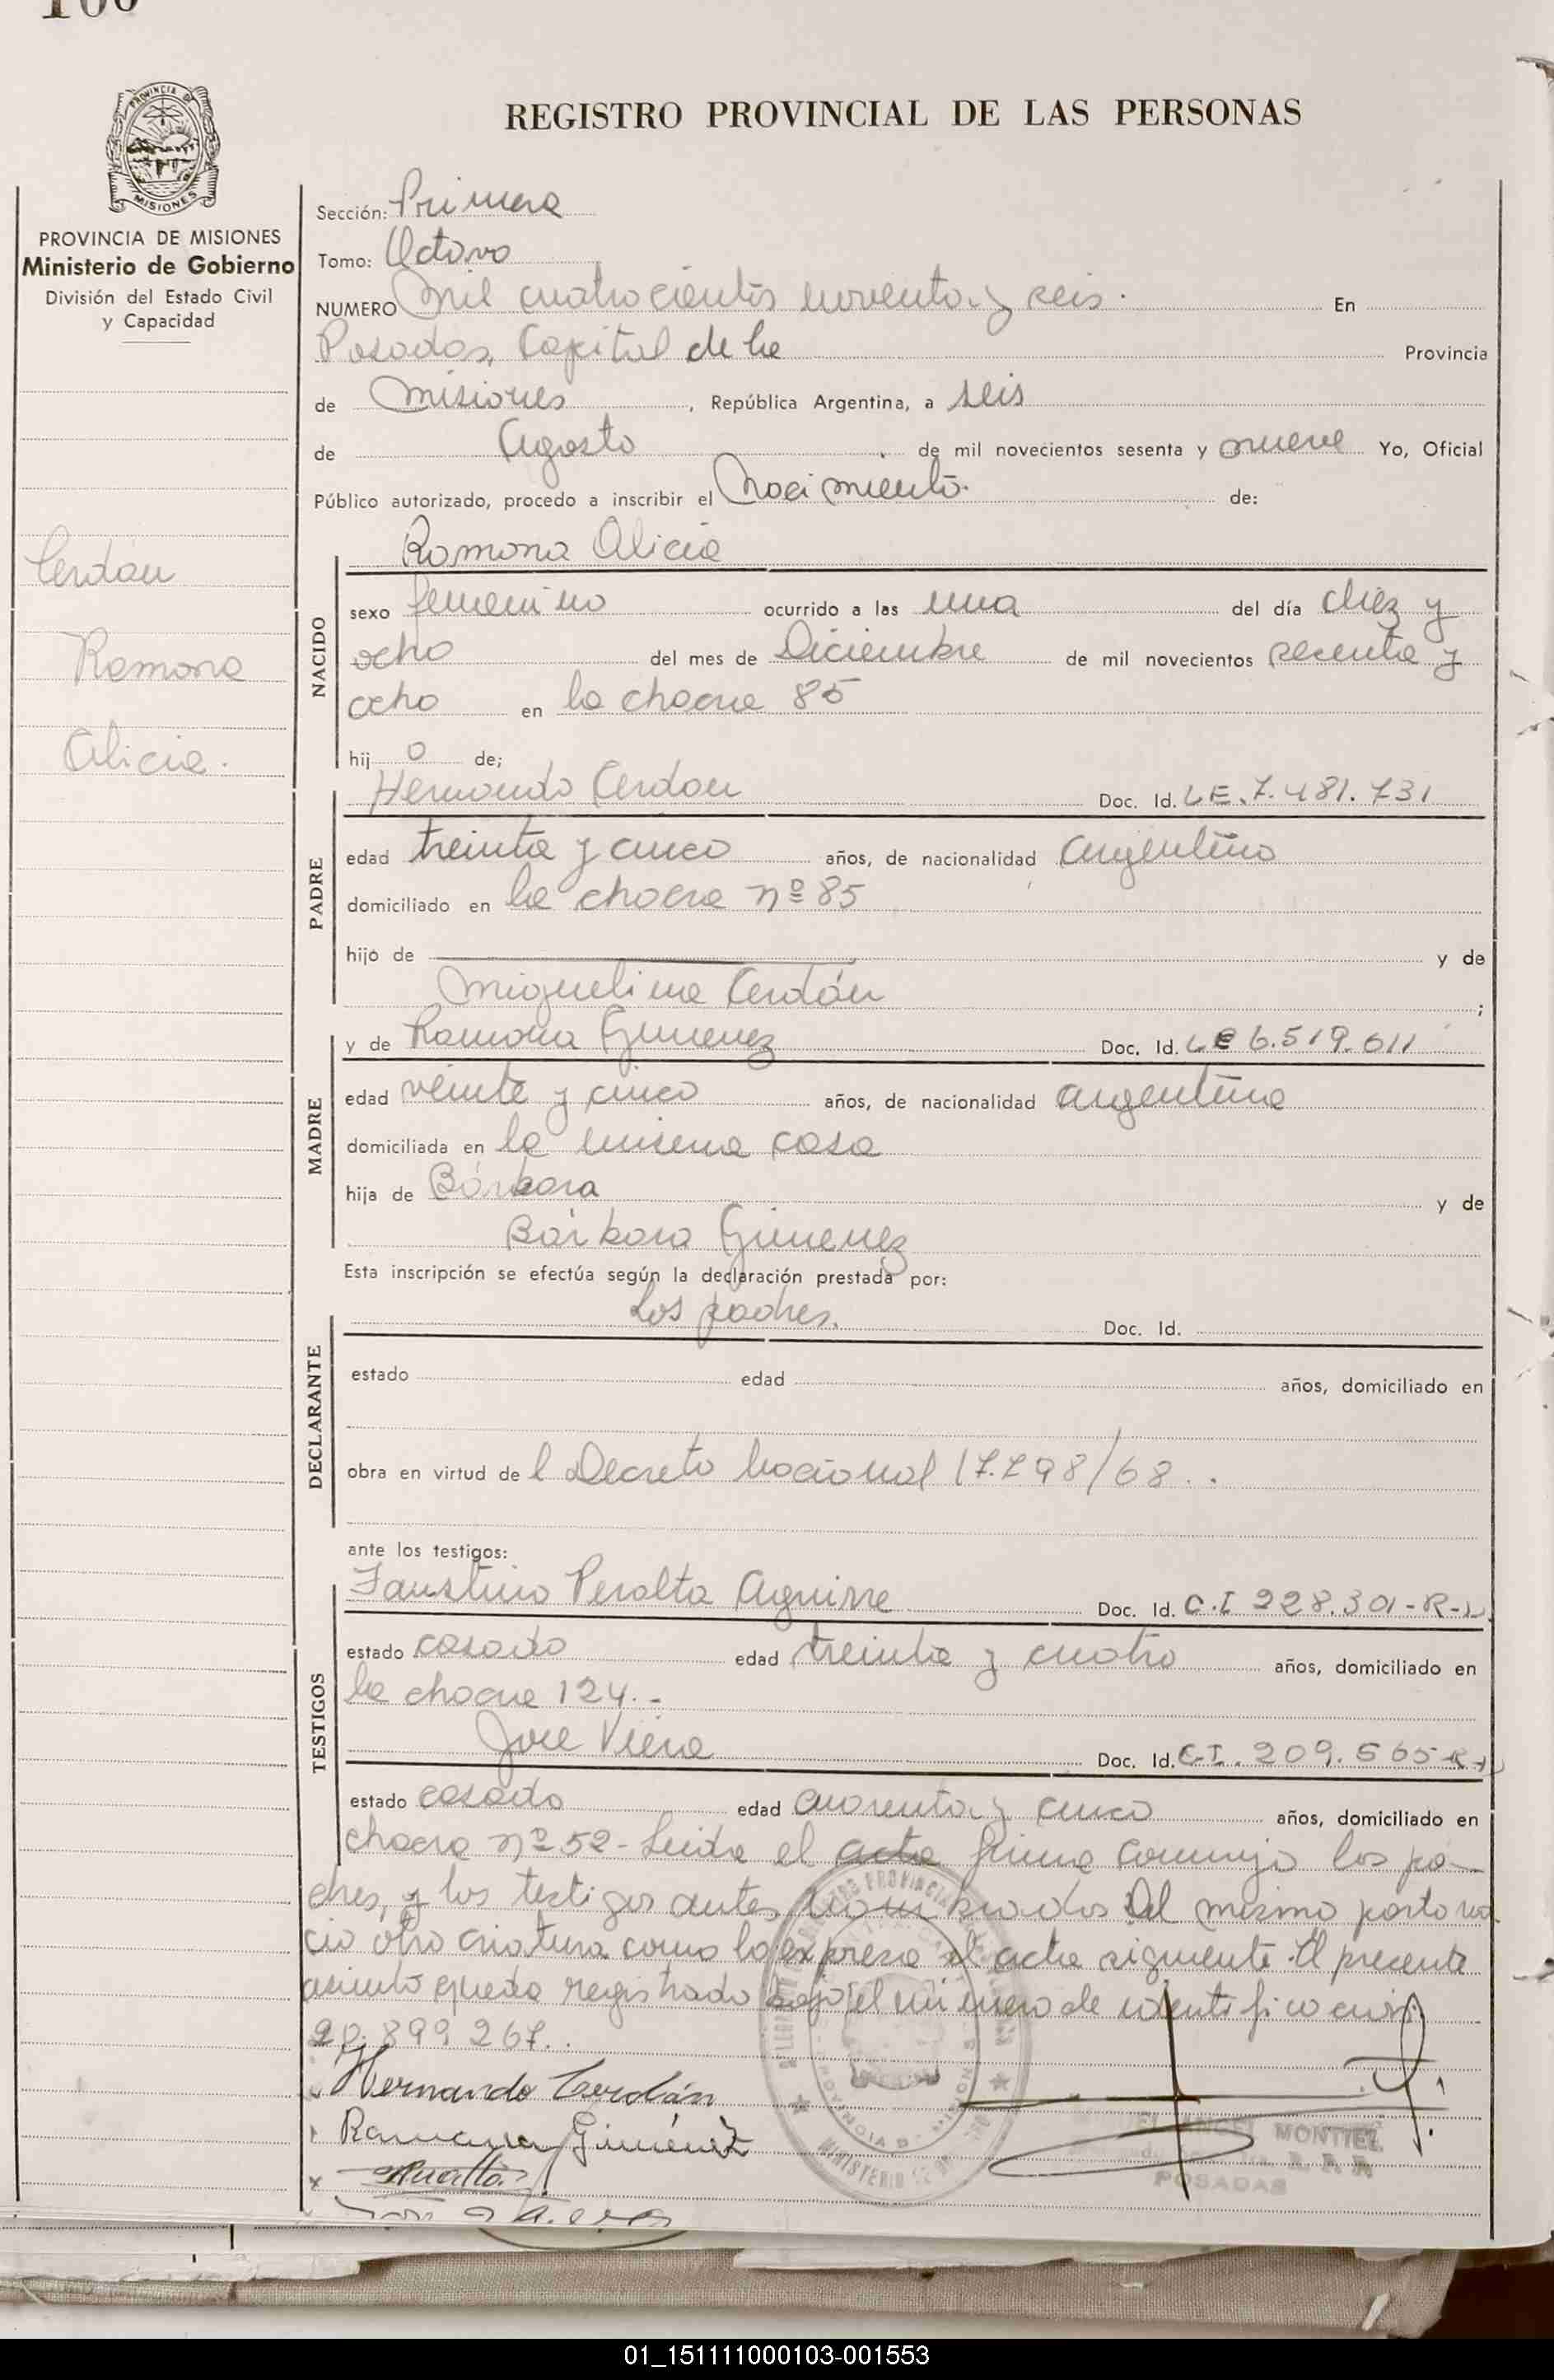 REGISTRO PROVINCIAL DE LAS PERSONAS
PROVINCIA DE MISIONES
Ministerio de Gobierno
División del Estado Civil
y Capacidad
Cerdán
Ramona
Alicia.
Sección: Primera
Tomo: Octavo
NUMERO Mil cuatrocientos noventa y seis. En
Posadas, Capital de la Provincia
de Misiones, República Argentina, a seis
de Agosto de mil novecientos sesenta y nueve Yo, Oficial
Público autorizado, procedo a inscribir el Nacimiento. de:
NACIDO
Ramona Alicia
sexo femenino ocurrido a las una del día diez y
ocho del mes de Diciembre de mil novecientos sesenta y
ocho en la chacra 85
hij o de;
PADRE
Hernando Cerdan Doc. Id. LE. 7.481.731
edad treinta y cinco años, de nacionalidad argentino
domiciliado en la chacra nº 85
hijo de y de
Miguelina Cerdán ;
MADRE
y de Ramona Gimenez Doc. Id. LC 6.519.611
edad veinte y cinco años, de nacionalidad argentina
domiciliada en la misma casa
hija de Bárbara y de
Bárbara Gimenez
Esta inscripción se efectúa según la declaración prestada por:
DECLARANTE
Los padres. Doc. Id.
estado edad años, domiciliado en
obra en virtud de l Decreto Nacional 17.798/68..
ante los testigos:
TESTIGOS
Faustino Peralta Aguirre Doc. Id. C.I 228.301-R-
estado casado edad treinta y cuatro años, domiciliado en
la chacra 124.-
José Viera Doc. Id. C.I. 209.565-R-
estado casado edad cuarenta y cinco años, domiciliado en
chacra nº 52- Leída el acta firma conmigo los pa-
dres, y los testigos antes nombrados Del mismo parto na
ció otra criatura como lo expresa el acta siguiente. El presente
asiento queda registrado bajo el número de identifico
20.899.267..
Hernando Cerdán
Ramona Giménez
MONTIEL
POSADAS
01_151111000103-001553